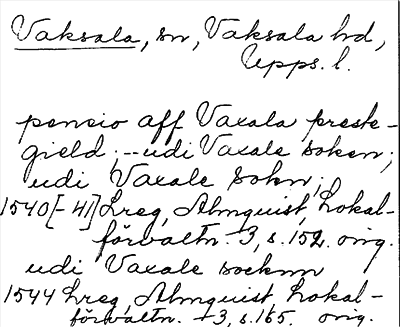 Vaksala, sn, Vaksala hd,
Upps. l.
pensio aff Vaxala preste-
gield; -- udi Vaxale soken;
udi Vaxale sokn;
1540[-41] Lreg, Almquist, Lokal-
förvaltn. +3, s. 152. orig.
udi Vaxale socknn
1544 Lreg, Almquist, Lokal-
förvaltn. +3, s. 165. orig.